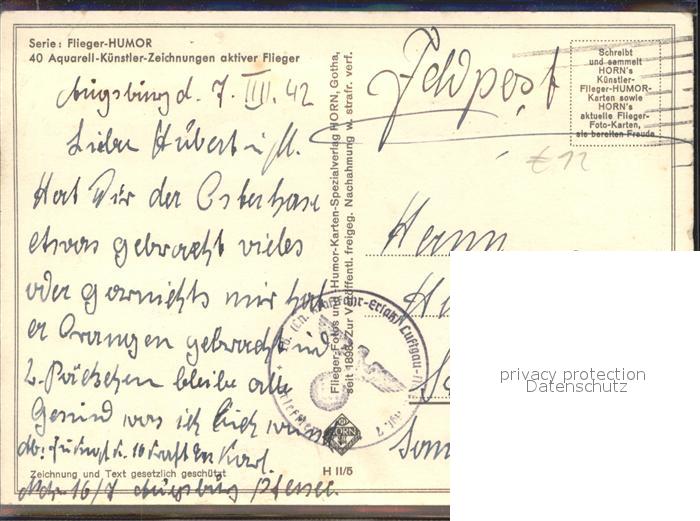 Serie: Flieger-HUMOR
40 Aquarell-Künstler-Zeichnungen aktiver Flieger
Augsburg d. 7. IIII. 42
Lieber Hubert u. M.
Hat Dir der Osterhase
etwas gebracht vieles
oder garnichts mir hat
er Orangen gebracht und
2. Päckchen bleibe alle
Gesund was ich Euch
Karl.
16/7 Augsburg Pfersee.
Zeichnung und Text gesetzlich geschützt
H 11/5
Flieger-Fotos und -Humor-Karten-Spezialverlag HORN, Gotha,
seit 1898. Zur Veröffentl. freigeg. Nachahmung w. strafr. verf.
HORN
Feldpost
Schreibt
und sammelt
HORN's
Künstler-
Flieger-HUMOR-
Karten sowie
HORN's
aktuelle Flieger-
Foto-Karten,
sie bereiten Freude
€ 12
Herrn
privacy protection
Datenschutz